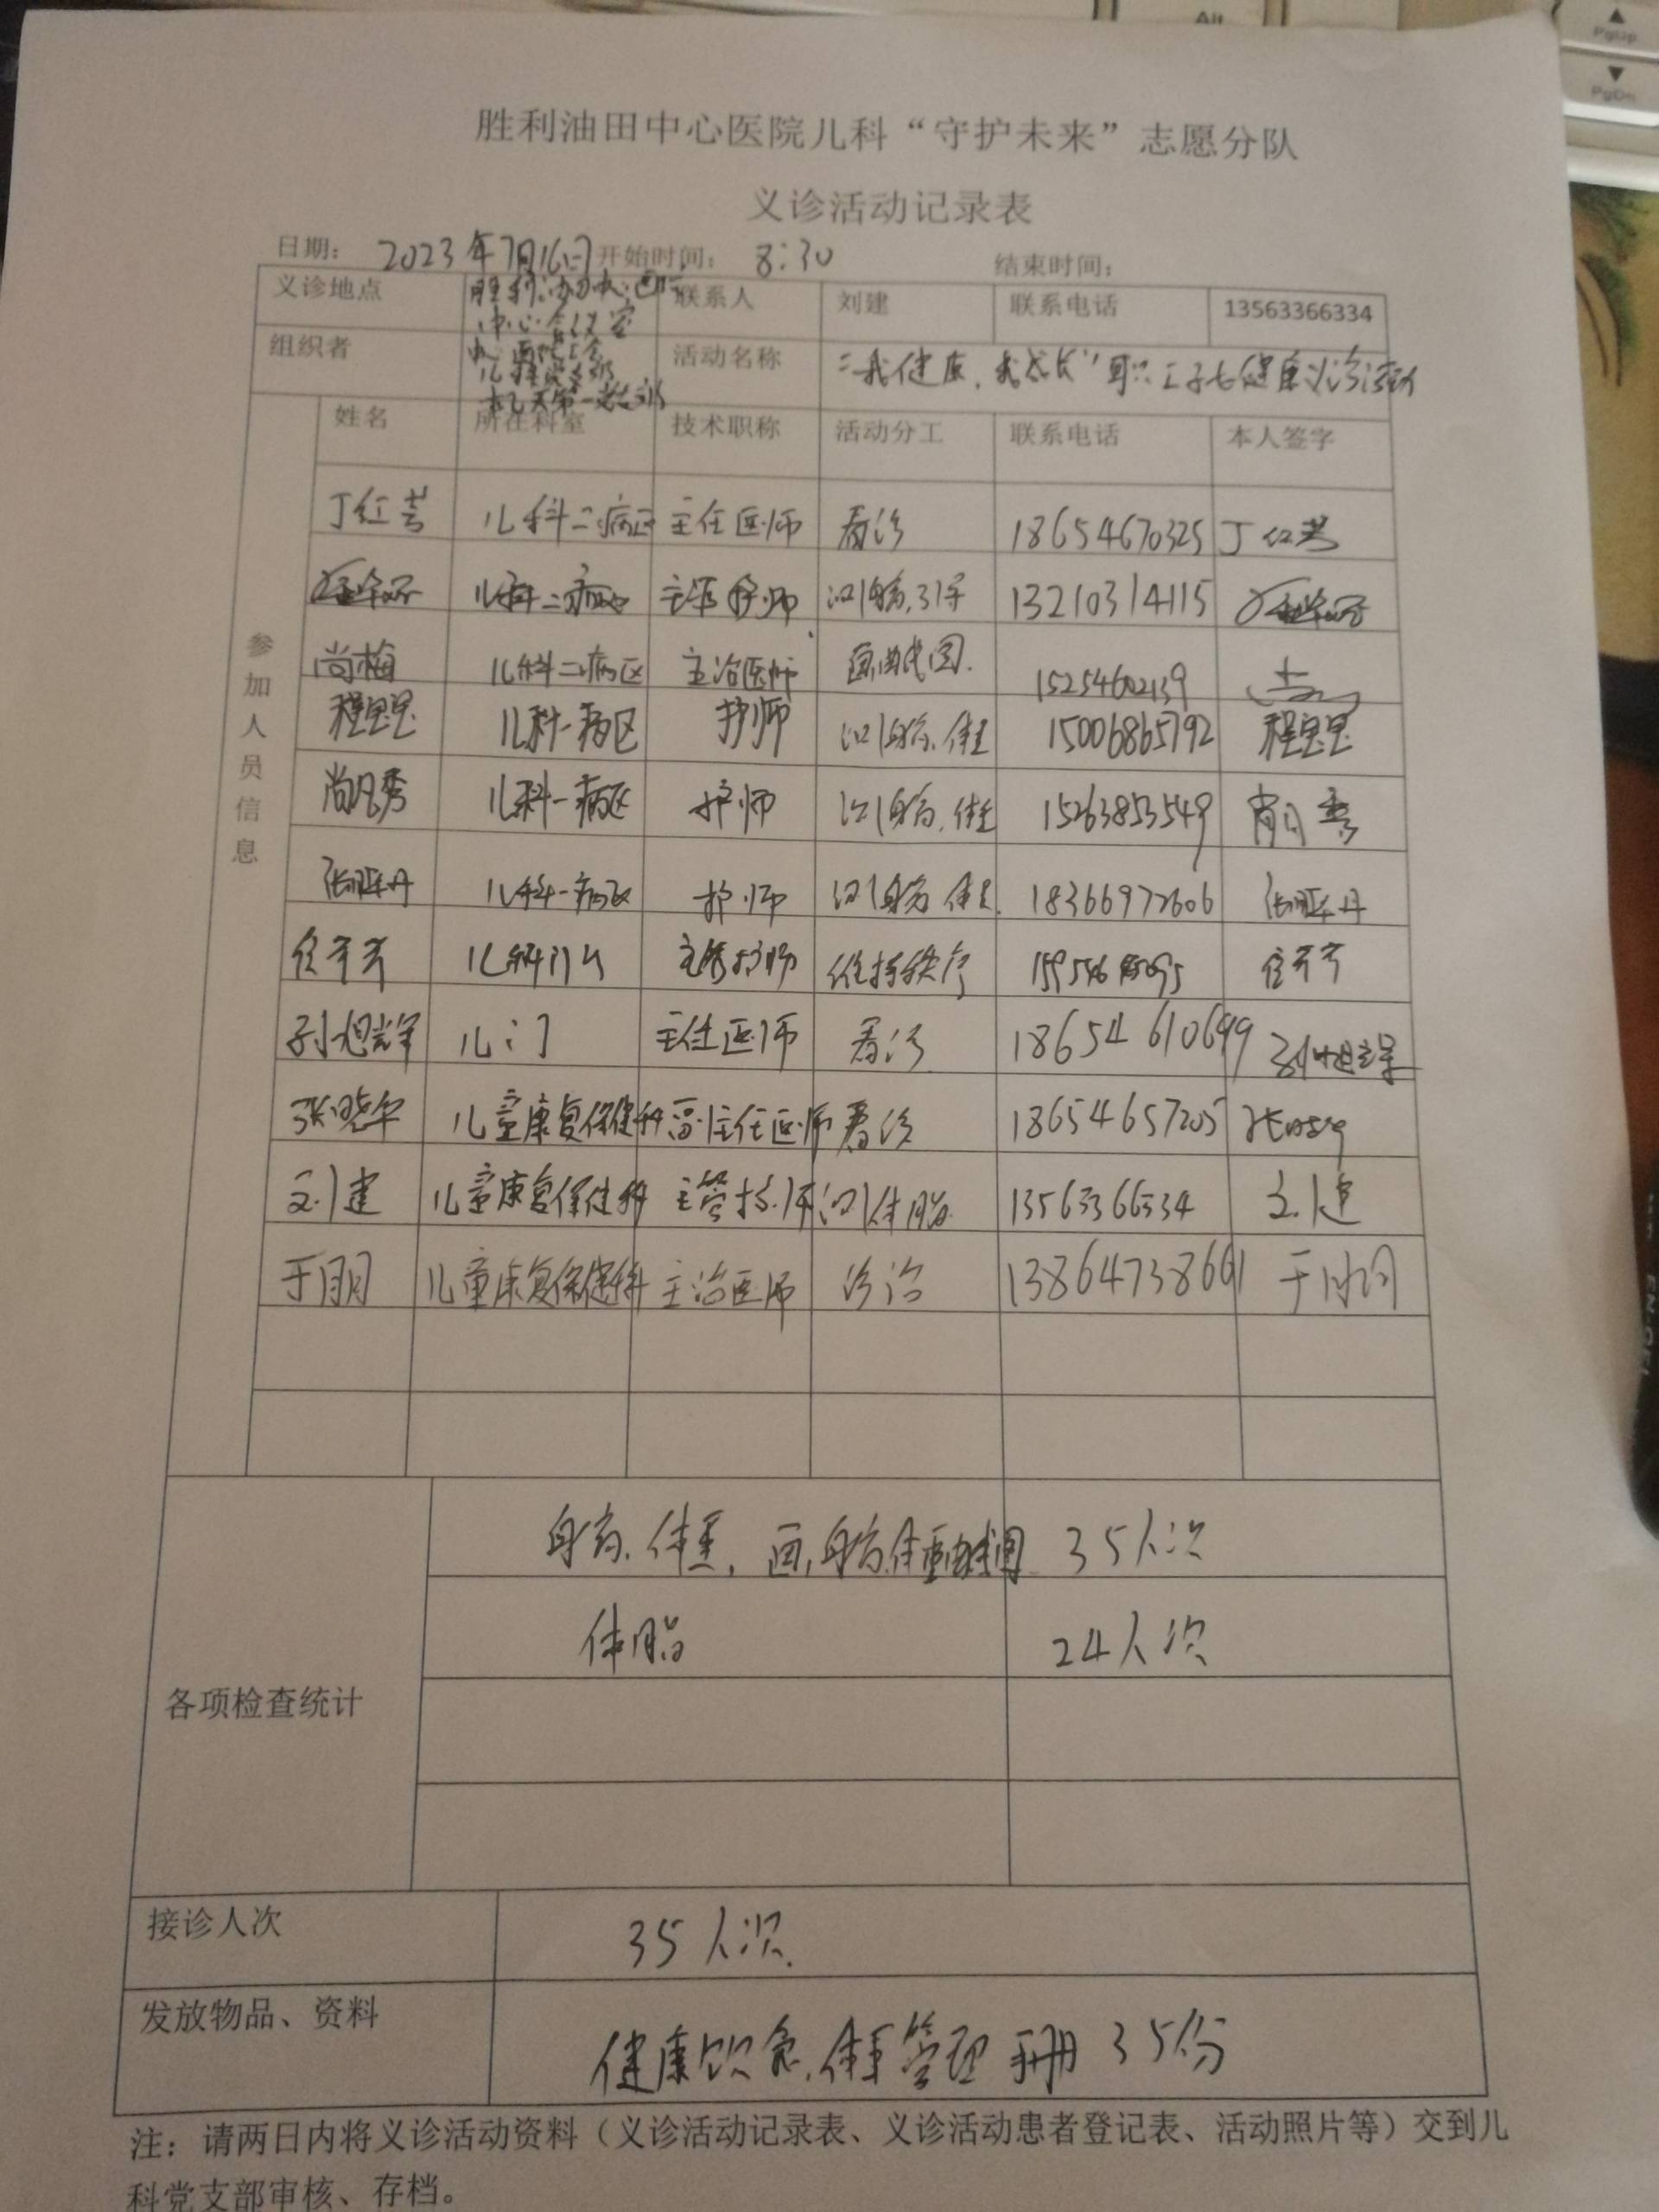 Alt
PgUp
PgDn
胜利油田中心医院儿科“守护未来”志愿分队
义诊活动记录表
日期： 2023年7月16日 开始时间： 8:30 结束时间：
义诊地点 中心会议室 联系人 刘建 联系电话 13563366334
组织者 活动名称 “我健康，我成长”职工子女健康义诊活动
参加人员信息
姓名 所在科室 技术职称 活动分工 联系电话 本人签字
丁红芳 儿科二病区 主任医师 看诊 18654670325 丁红芳
儿科二病区 主管护师 测身高、引导 13210314115
尚梅 儿科二病区 主治医师 画曲线图. 15254602139
程思思 儿科一病区 护师 测身高、体重 15006865792 程思思
尚凡秀 儿科一病区 护师 测身高、体重 15263853549
张亚丹 儿科一病区 护师 测身高 体重 18366972606 张亚丹
任齐齐 儿科门诊 主管护师 维持秩序 任齐齐
孙旭辉 儿门 主任医师 看诊 18654610699 孙旭辉
张晓华 儿童康复保健科 副主任医师 看诊 18654657205
刘建 儿童康复保健科 主管技师 测体脂 13563366334 刘建
于朋 儿童康复保健科 主治医师 诊治 13864738661
各项检查统计
身高、体重，画身高体重曲线图 35人次
体脂 24人次
接诊人次 35人次.
发放物品、资料 健康饮食、体重管理手册 35份
注：请两日内将义诊活动资料（义诊活动记录表、义诊活动患者登记表、活动照片等）交到儿
科党支部审核、存档。